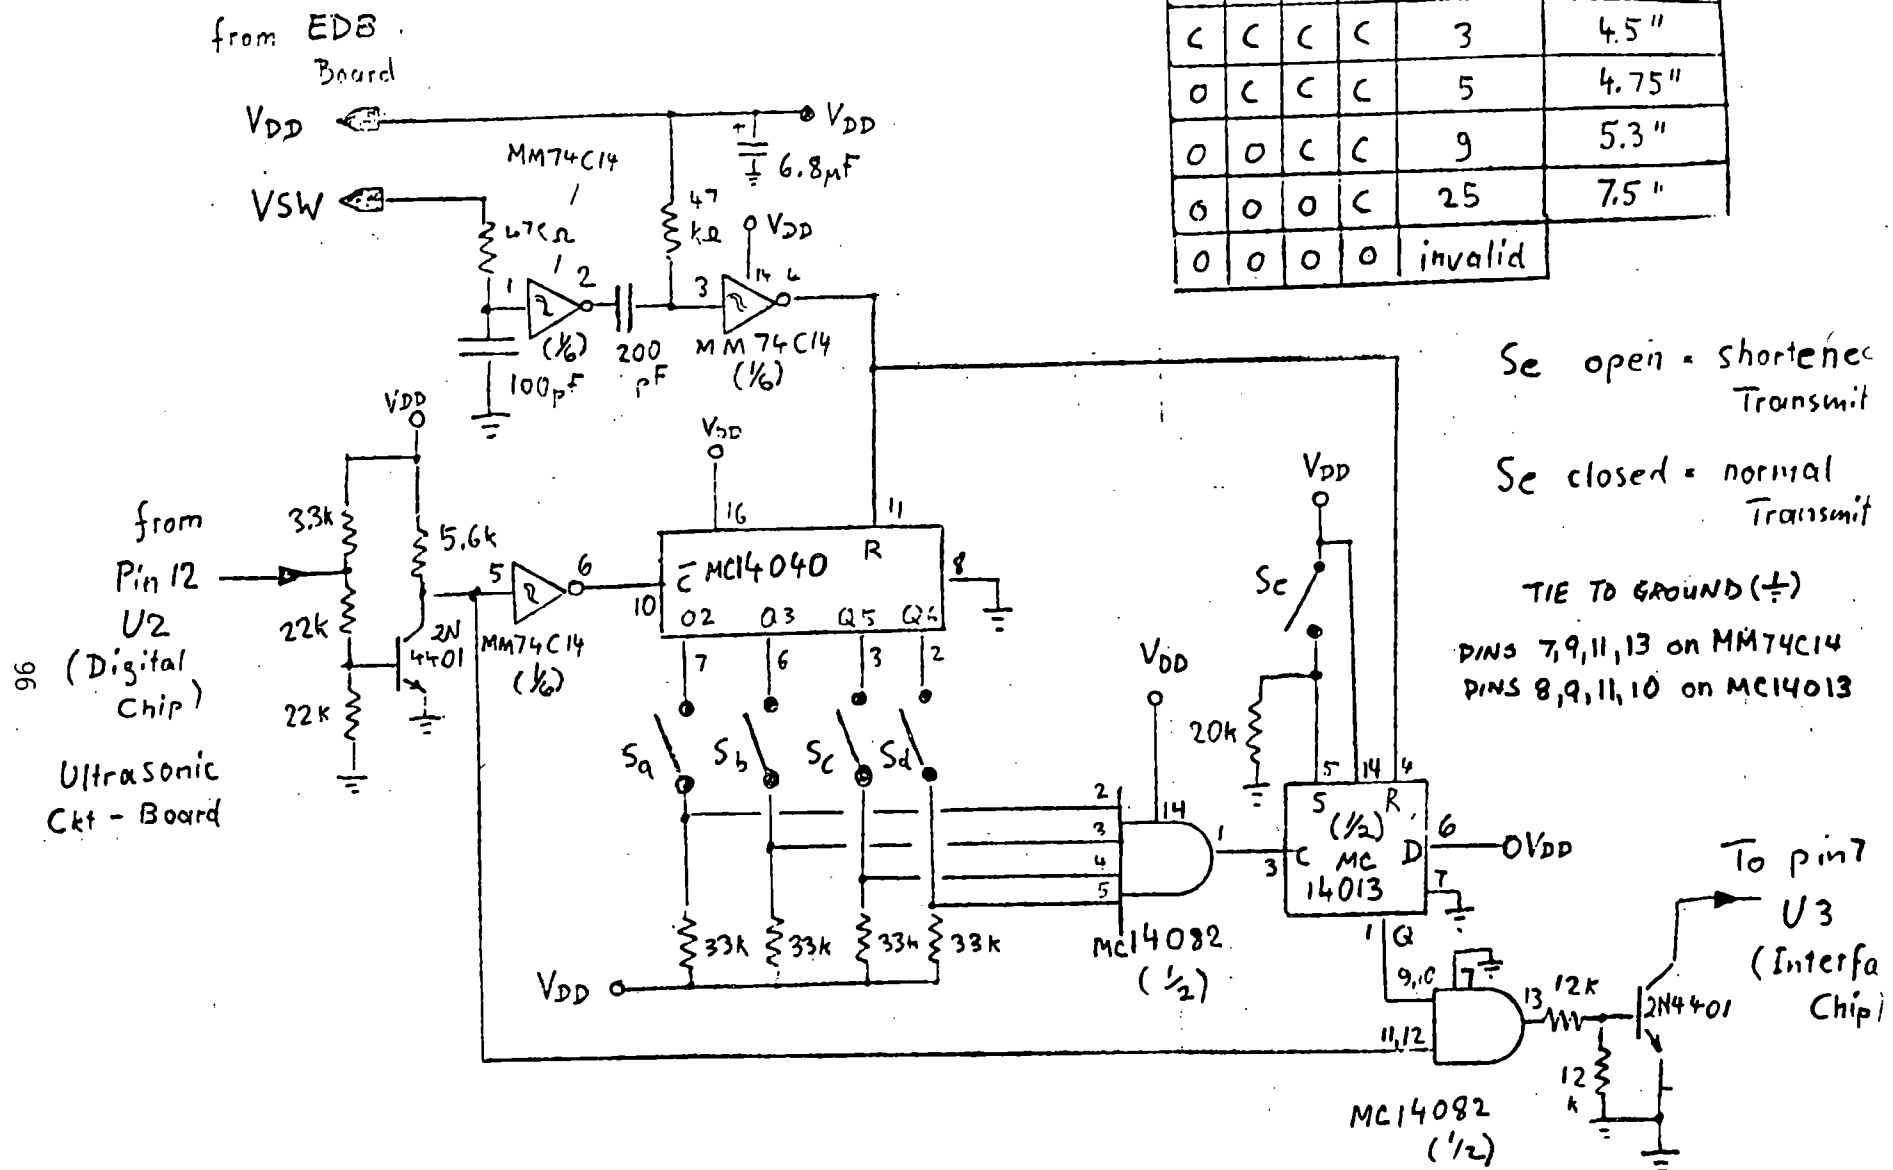 from EDB
Board
VDD
VDD
6.8µF
MM74C14
VSW
47KΩ
47
kΩ
VDD
1
2
3
14
4
(1/6)
200
pF
MM74C14
(1/6)
100pF
C C C C 3 4.5"
O C C C 5 4.75"
O O C C 9 5.3"
O O O C 25 7.5"
O O O O invalid
Se open = shortenec
Transmit
Se closed = normal
Transmit
TIE TO GROUND (⏚)
PINS 7,9,11,13 on MM74C14
PINS 8,9,11,10 on MC14013
VDD
3.3k
5.6k
from
Pin 12
U2
(Digital
Chip)
Ultrasonic
Ckt - Board
96
22k
22k
2N
4401
5
6
MM74C14
(1/6)
VDD
16
11
R
C̅ MC14040
8
10
Q2 Q3 Q5 Q6
7
6
3
2
Sa
Sb
Sc
Sd
33k
33k
33k
33k
VDD
VDD
2
3
4
5
14
1
MC14082
(1/2)
VDD
Se
20k
5
14
4
S
R
(1/2)
3
C
MC
14013
D
6
VDD
7
1
Q
9,10
7
11,12
13
12k
12
k
2N4401
MC14082
(1/2)
To pin7
U3
(Interfa
Chip)